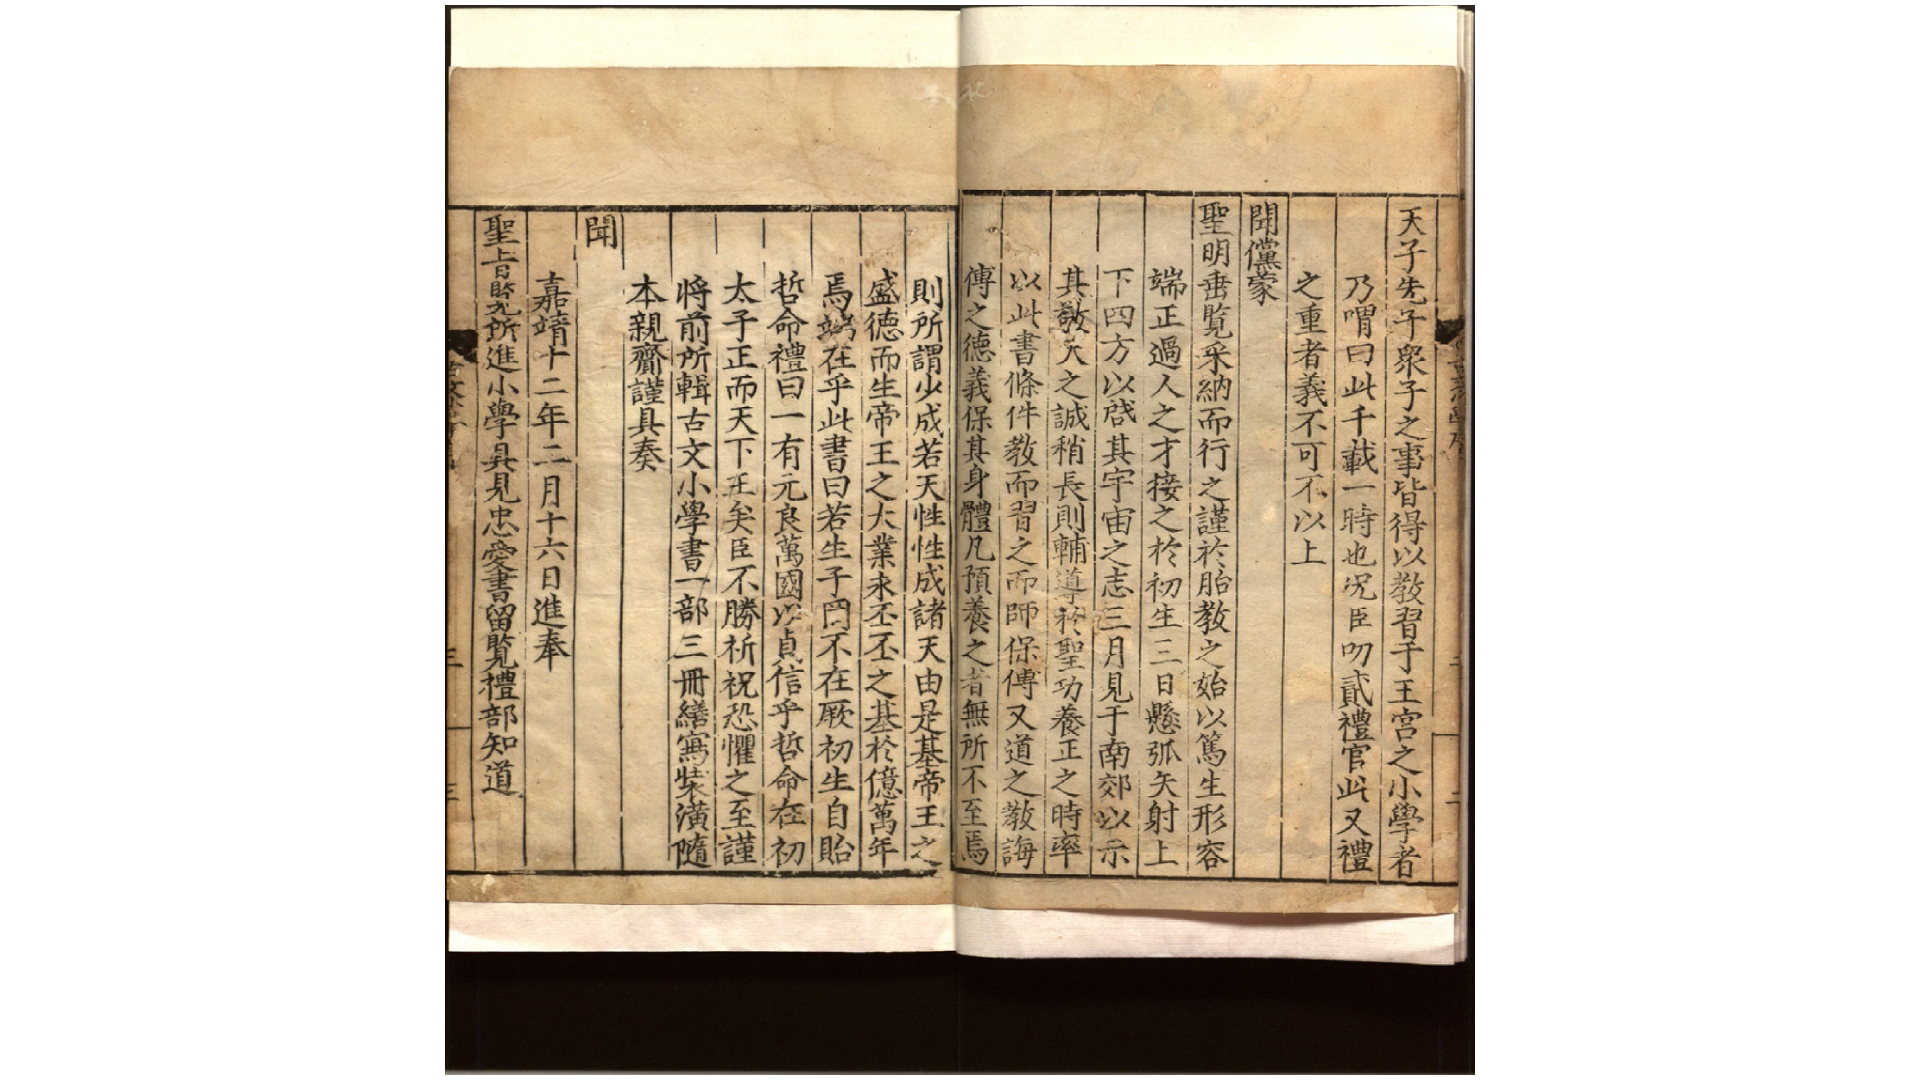 天子先子衆子之事皆得以教習于王宮之小學者
乃喟曰此千載一時也况臣叨貳禮官此又禮
之重者義不可不以上
聞儻蒙
聖明垂覧采納而行之謹於胎教之始以篤生形容
端正過人之才接之於初生三日懸弧矢射上
下四方以啓其宇宙之志三月見于南郊以示
其敬天之誠稍長則輔導於聖功養正之時率
以此書條件教而習之而師保傅又道之教誨
傅之德義保其身體凡預養之者無所不至焉
則所謂少成若天性性成諸天由是基帝王之
盛德而生帝王之大業永丕丕之基於億萬年
焉端在乎此書曰若生子罔不在厥初生自貽
哲命禮曰一有元良萬國以貞信乎哲命在初
太子正而天下正矣臣不勝祈祝恐懼之至謹
將前所輯古文小學書一部三冊繕寫裝潢隨
本親齎謹具奏
聞
嘉靖十二年二月十六日進奉
聖旨覧所進小學具見忠愛書留覧禮部知道